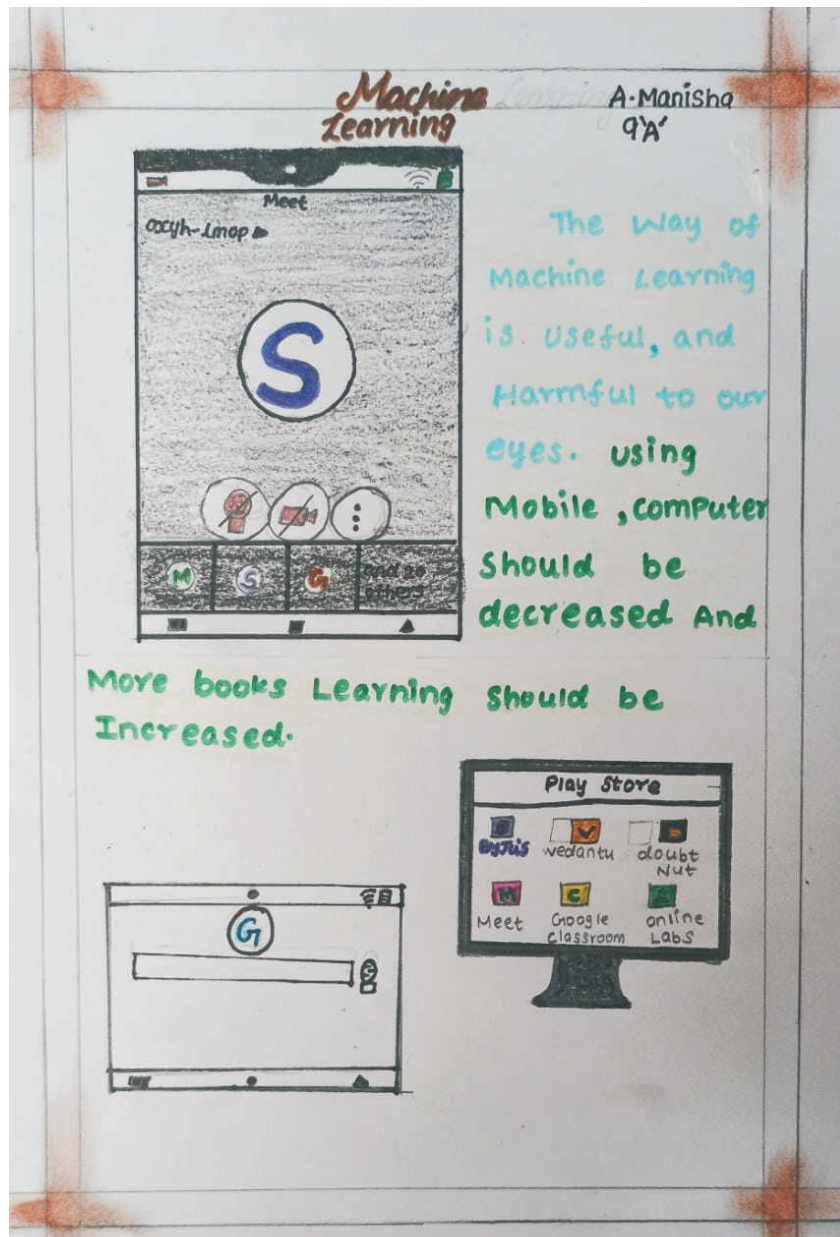 Machine
Learning
A. Manisha
9 'A'
Meet
S
M
S
G
The Way of
Machine Learning
is useful, and
Harmful to our
eyes. using
Mobile, computer
Should be
decreased And
More books Learning Should be
Increased.
Play Store
Byju's
vedantu
doubt
Nut
M
C
Meet
Google
classroom
online
Labs
G